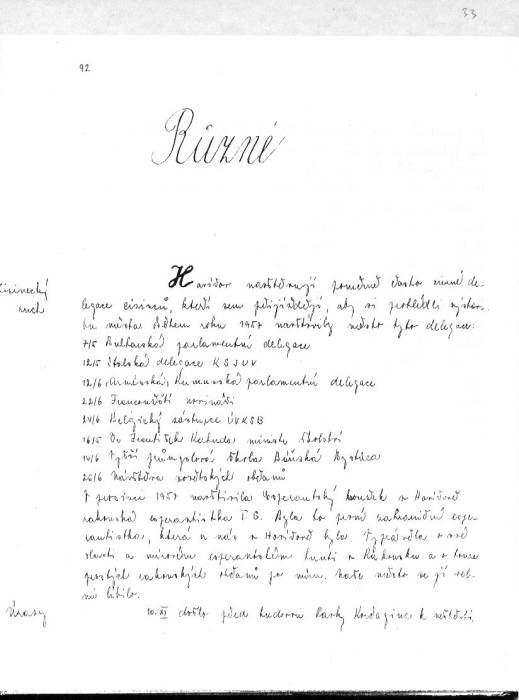 33
92
Různé
Cizinecký
ruch
Havířov navštěvují poměrně často různé de-
legace cizinců, kteří sem přijíždějí, aby si prohlédli výstav-
bu města. Během roku 1957 navštívily město tyto delegace:
7/5 Bulharská parlamentní delegace
12/5 Italská delegace
12/6 Arménská, Rumunská parlamentní delegace
22/6 Francouzští novináři
24/6 Belgický zástupce ÚVKSB
16/5 Dr František Kahuda ministr školství
14/6 Vyšší průmyslová škola Báňská Bystrica
26/6 Návštěva sovětských občanů
V prosinci 1957 navštívila Esperantský kroužek v Havířově
rakouská esperantistka T. G. Byla to první zahraniční espe-
rantistka, která u nás v Havířově byla. Vyprávěla o své
vlasti a mírovém esperantském hnutí v Rakousku a o touze
prostých rakouských občanů po míru. Naše město se jí vel-
mi líbilo.
Úrazy
10. XI došlo před budovou